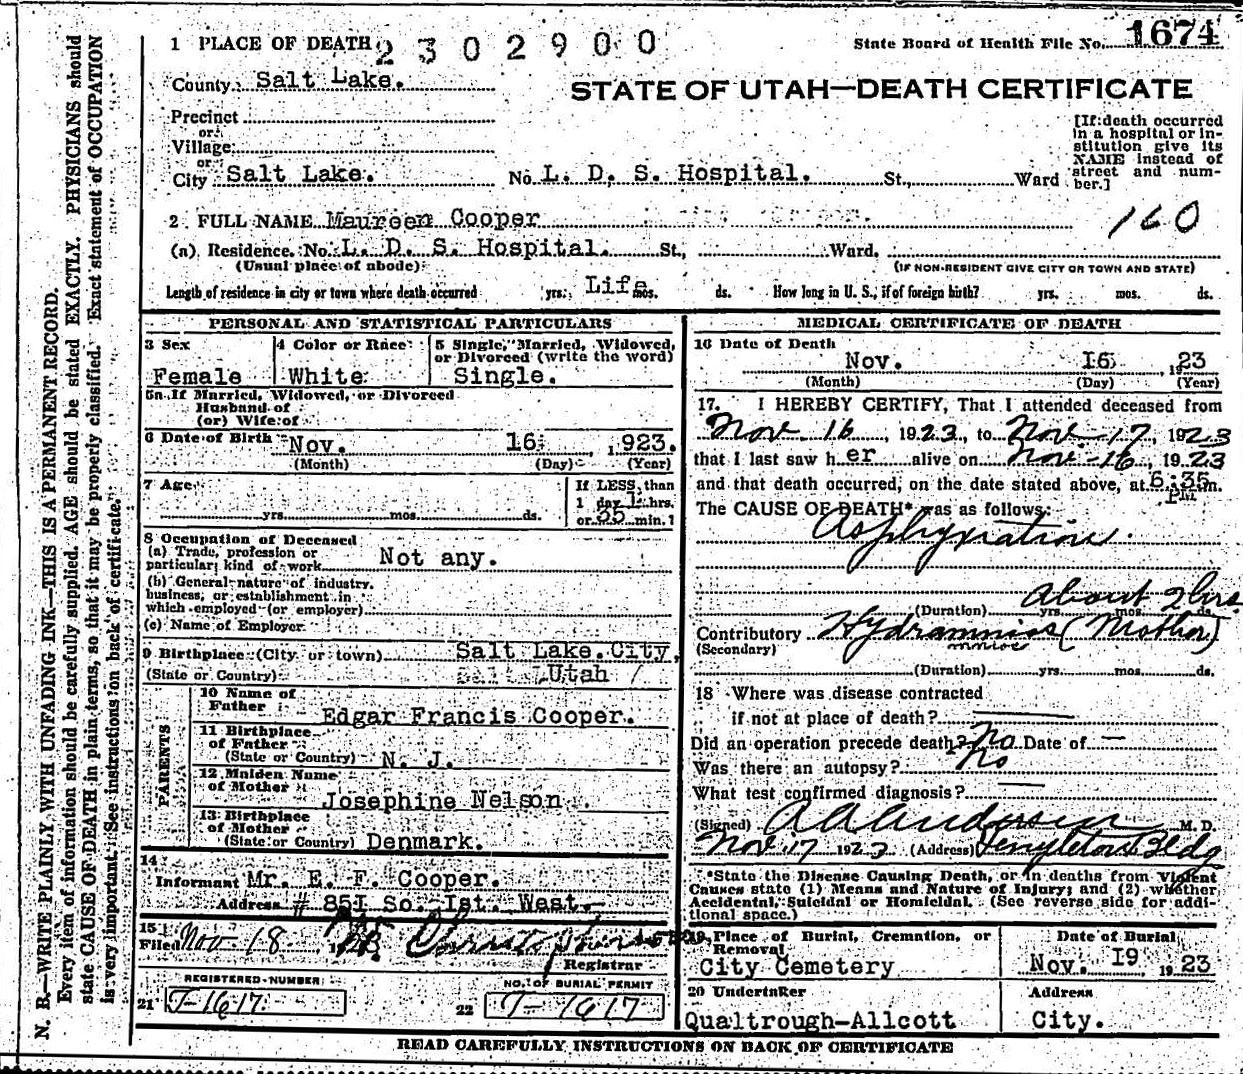 1 PLACE OF DEATH 2302900
State Board of Health File No. 1674
County Salt Lake.
STATE OF UTAH—DEATH CERTIFICATE
Precinct
or
Village
or
City Salt Lake. No. L. D. S. Hospital. St., Ward
[If death occurred
in a hospital or in-
stitution give its
NAME instead of
street and num-
ber.]
2 FULL NAME Maureen Cooper
160
(a) Residence. No. L. D. S. Hospital. St., Ward.
(Usual place of abode) (IF NON-RESIDENT GIVE CITY OR TOWN AND STATE)
Length of residence in city or town where death occurred yrs. Life mos. ds. How long in U. S., if of foreign birth? yrs. mos. ds.
PERSONAL AND STATISTICAL PARTICULARS
3 Sex
Female
4 Color or Race
White
5 Single, Married, Widowed,
or Divorced (write the word)
Single.
5a If Married, Widowed, or Divorced
Husband of
(or) Wife of
6 Date of Birth Nov. 16 , 1923.
(Month) (Day) (Year)
7 Age
yrs. mos. ds.
If LESS than
1 day 1 hrs.
or 35 min.?
8 Occupation of Deceased
(a) Trade, profession or
particular kind of work Not any.
(b) General nature of industry,
business, or establishment in
which employed (or employer)
(c) Name of Employer
9 Birthplace (City or town) Salt Lake City,
(State or Country) Utah
PARENTS
10 Name of
Father Edgar Francis Cooper.
11 Birthplace
of Father
(State or Country) N. J.
12 Maiden Name
of Mother Josephine Nelson.
13 Birthplace
of Mother
(State or Country) Denmark.
14
Informant Mr. E. F. Cooper.
Address # 851 So. 1st. West.
15
Filed Nov 18
Registrar
REGISTERED NUMBER
21 T-1617
NO. OF BURIAL PERMIT
22 T-1617
MEDICAL CERTIFICATE OF DEATH
16 Date of Death
Nov. 16 , 1923
(Month) (Day) (Year)
17. I HEREBY CERTIFY, That I attended deceased from
Nov. 16, 1923, to Nov. 17, 1923
that I last saw her alive on Nov-16, 1923
and that death occurred, on the date stated above, at 6:35 m.
PM
The CAUSE OF DEATH* was as follows:
Asphyxiation.
About 2 hrs
(Duration) yrs. mos. ds.
Contributory Hydramnios (Mother)
(Secondary) mnios
(Duration) yrs. mos. ds.
18 Where was disease contracted
if not at place of death? —
Did an operation precede death? No Date of —
Was there an autopsy? No
What test confirmed diagnosis? —
(Signed) A A Anderson M. D.
Nov 17 1923 (Address) Templeton Bldg
*State the Disease Causing Death, or in deaths from Violent
Causes state (1) Means and Nature of Injury; and (2) whether
Accidental, Suicidal or Homicidal. (See reverse side for addi-
tional space.)
19 Place of Burial, Cremation, or
Removal
City Cemetery
Date of Burial
Nov. 19 1923
20 Undertaker
Qualtrough-Allcott
Address
City.
READ CAREFULLY INSTRUCTIONS ON BACK OF CERTIFICATE
N. B.—WRITE PLAINLY, WITH UNFADING INK—THIS IS A PERMANENT RECORD.
Every item of information should be carefully supplied. AGE should be stated EXACTLY. PHYSICIANS should
state CAUSE OF DEATH in plain terms, so that it may be properly classified. Exact statement of OCCUPATION
is very important. See instructions on back of certificate.